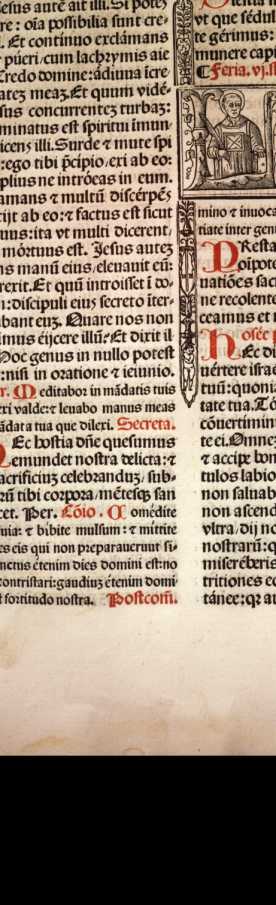 Jesus autē ait illi. Si potes
re: oīa possibilia sunt cre-
. Et continuo exclamans
pueri/cum lachrymis aie
Credo domine: adiuua īcre
atez meaz. Et quum vidē-
sus concurrentez turbaz:
minatus est spiritui imun
icens illi. Surde ⁊ mute spi
:ego tibi p̄cipio/exi ab eo:
plius ne introeas in eum.
amans ⁊ multū discerpēs
ijt ab eo: ⁊ factus est sicut
uus: ita vt multi dicerent/
mortuus est. Jesus autez
ns manū eius/eleuauit eū:
rexit. Et quū introisset ī do-
n: discipuli eius secreto īter-
bant euz. Quare nos non
imus eijcere illū? Et dixit il
Hoc genus in nullo potest
: nisi in oratione ⁊ ieiunio.
r. Meditabor in mādatis tuis
exi valde: ⁊ leuabo manus meas
ādata tua que dilexi. Secreta.
Ec hostia dn̄e quesumus
emundet nostra delicta: ⁊
acrificiuz celebranduz/sub-
rū tibi corpora/mētesqz san
cet. Per. Cōio. Comedite
uia: ⁊ bibite mulsum: ⁊ mittite
es eis qui non preparauerunt si-
nctus etenim dies domini est: no
contristari: gaudiuz etenim domi-
t fortitudo nostra. Postcom̄.
vt que sedul
te gerimus:
munere cap
Feria. vj. s
mino ⁊ inuoc
tiate inter gen
PResta
oīpote
natiōes sac
ne recolent
ceamus et
Osee p
Ec di
uertere israe
tuū: quoni
tate tua. Tō
cōuertimin
te ei. Omnez
⁊ accipe bon
tulos labio
non saluab
non ascend
vltra/dij no
nostrarū: q
misereberis
tritiones eo
tanee: qr a